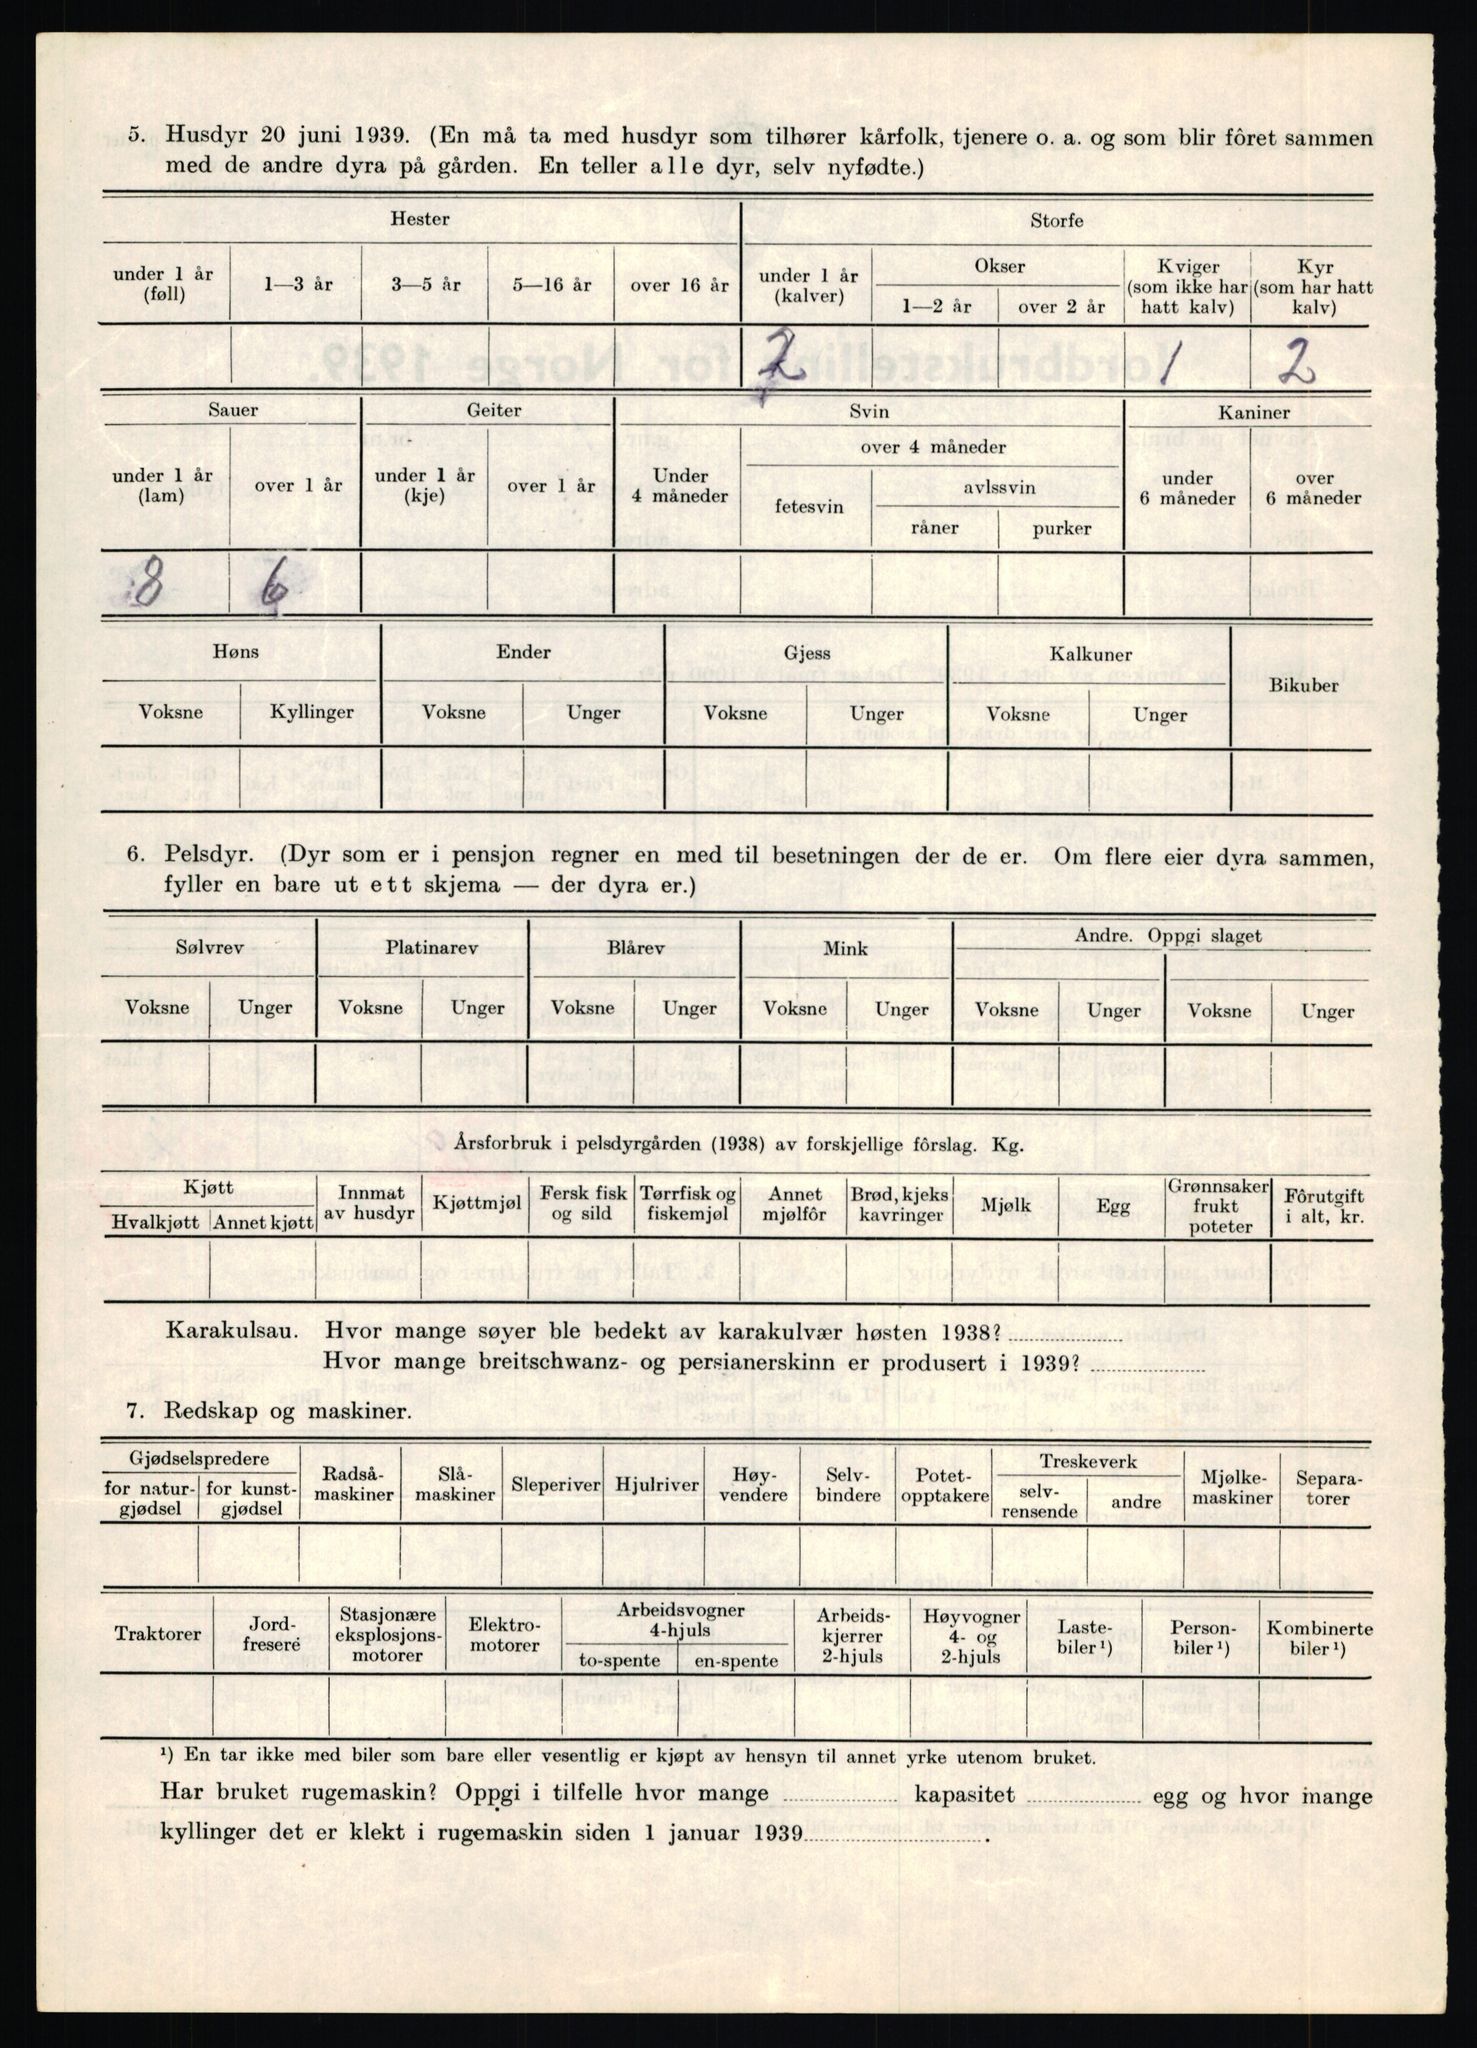 5. Husdyr 20 juni 1939. (En må ta med husdyr som tilhører kårfolk, tjenere o. a. og som blir fôret sammen
med de andre dyra på gården. En teller alle dyr, selv nyfødte.)
Hester Storfe
under 1 år (føll) 1—3 år 3—5 år 5—16 år over 16 år under 1 år (kalver) Okser 1—2 år over 2 år Kviger (som ikke har hatt kalv) Kyr (som har hatt kalv)
2 1 2
Sauer Geiter Svin Kaniner
under 1 år (lam) over 1 år under 1 år (kje) over 1 år Under 4 måneder over 4 måneder fetesvin avlssvin råner purker under 6 måneder over 6 måneder
8 6
Høns Ender Gjess Kalkuner Bikuber
Voksne Kyllinger Voksne Unger Voksne Unger Voksne Unger
6. Pelsdyr. (Dyr som er i pensjon regner en med til besetningen der de er. Om flere eier dyra sammen,
fyller en bare ut ett skjema — der dyra er.)
Sølvrev Platinarev Blårev Mink Andre. Oppgi slaget
Voksne Unger Voksne Unger Voksne Unger Voksne Unger Voksne Unger Voksne Unger
Årsforbruk i pelsdyrgården (1938) av forskjellige fôrslag. Kg.
Kjøtt Hvalkjøtt Annet kjøtt Innmat av husdyr Kjøttmjøl Fersk fisk og sild Tørrfisk og fiskemjøl Annet mjølfôr Brød, kjeks kavringer Mjølk Egg Grønnsaker frukt poteter Fôrutgift i alt, kr.
Karakulsau. Hvor mange søyer ble bedekt av karakulvær høsten 1938?
Hvor mange breitschwanz- og persianerskinn er produsert i 1939?
7. Redskap og maskiner.
Gjødselspredere for naturgjødsel for kunstgjødsel Radsåmaskiner Slåmaskiner Sleperiver Hjulriver Høyvendere Selvbindere Potetopptakere Treskeverk selvrensende andre Mjølkemaskiner Separatorer
Traktorer Jordfresere Stasjonære eksplosjonsmotorer Elektromotorer Arbeidsvogner 4-hjuls to-spente en-spente Arbeidskjerrer 2-hjuls Høyvogner 4- og 2-hjuls Lastebiler ¹) Personbiler ¹) Kombinerte biler ¹)
¹) En tar ikke med biler som bare eller vesentlig er kjøpt av hensyn til annet yrke utenom bruket.
Har bruket rugemaskin? Oppgi i tilfelle hvor mange kapasitet egg og hvor mange
kyllinger det er klekt i rugemaskin siden 1 januar 1939.